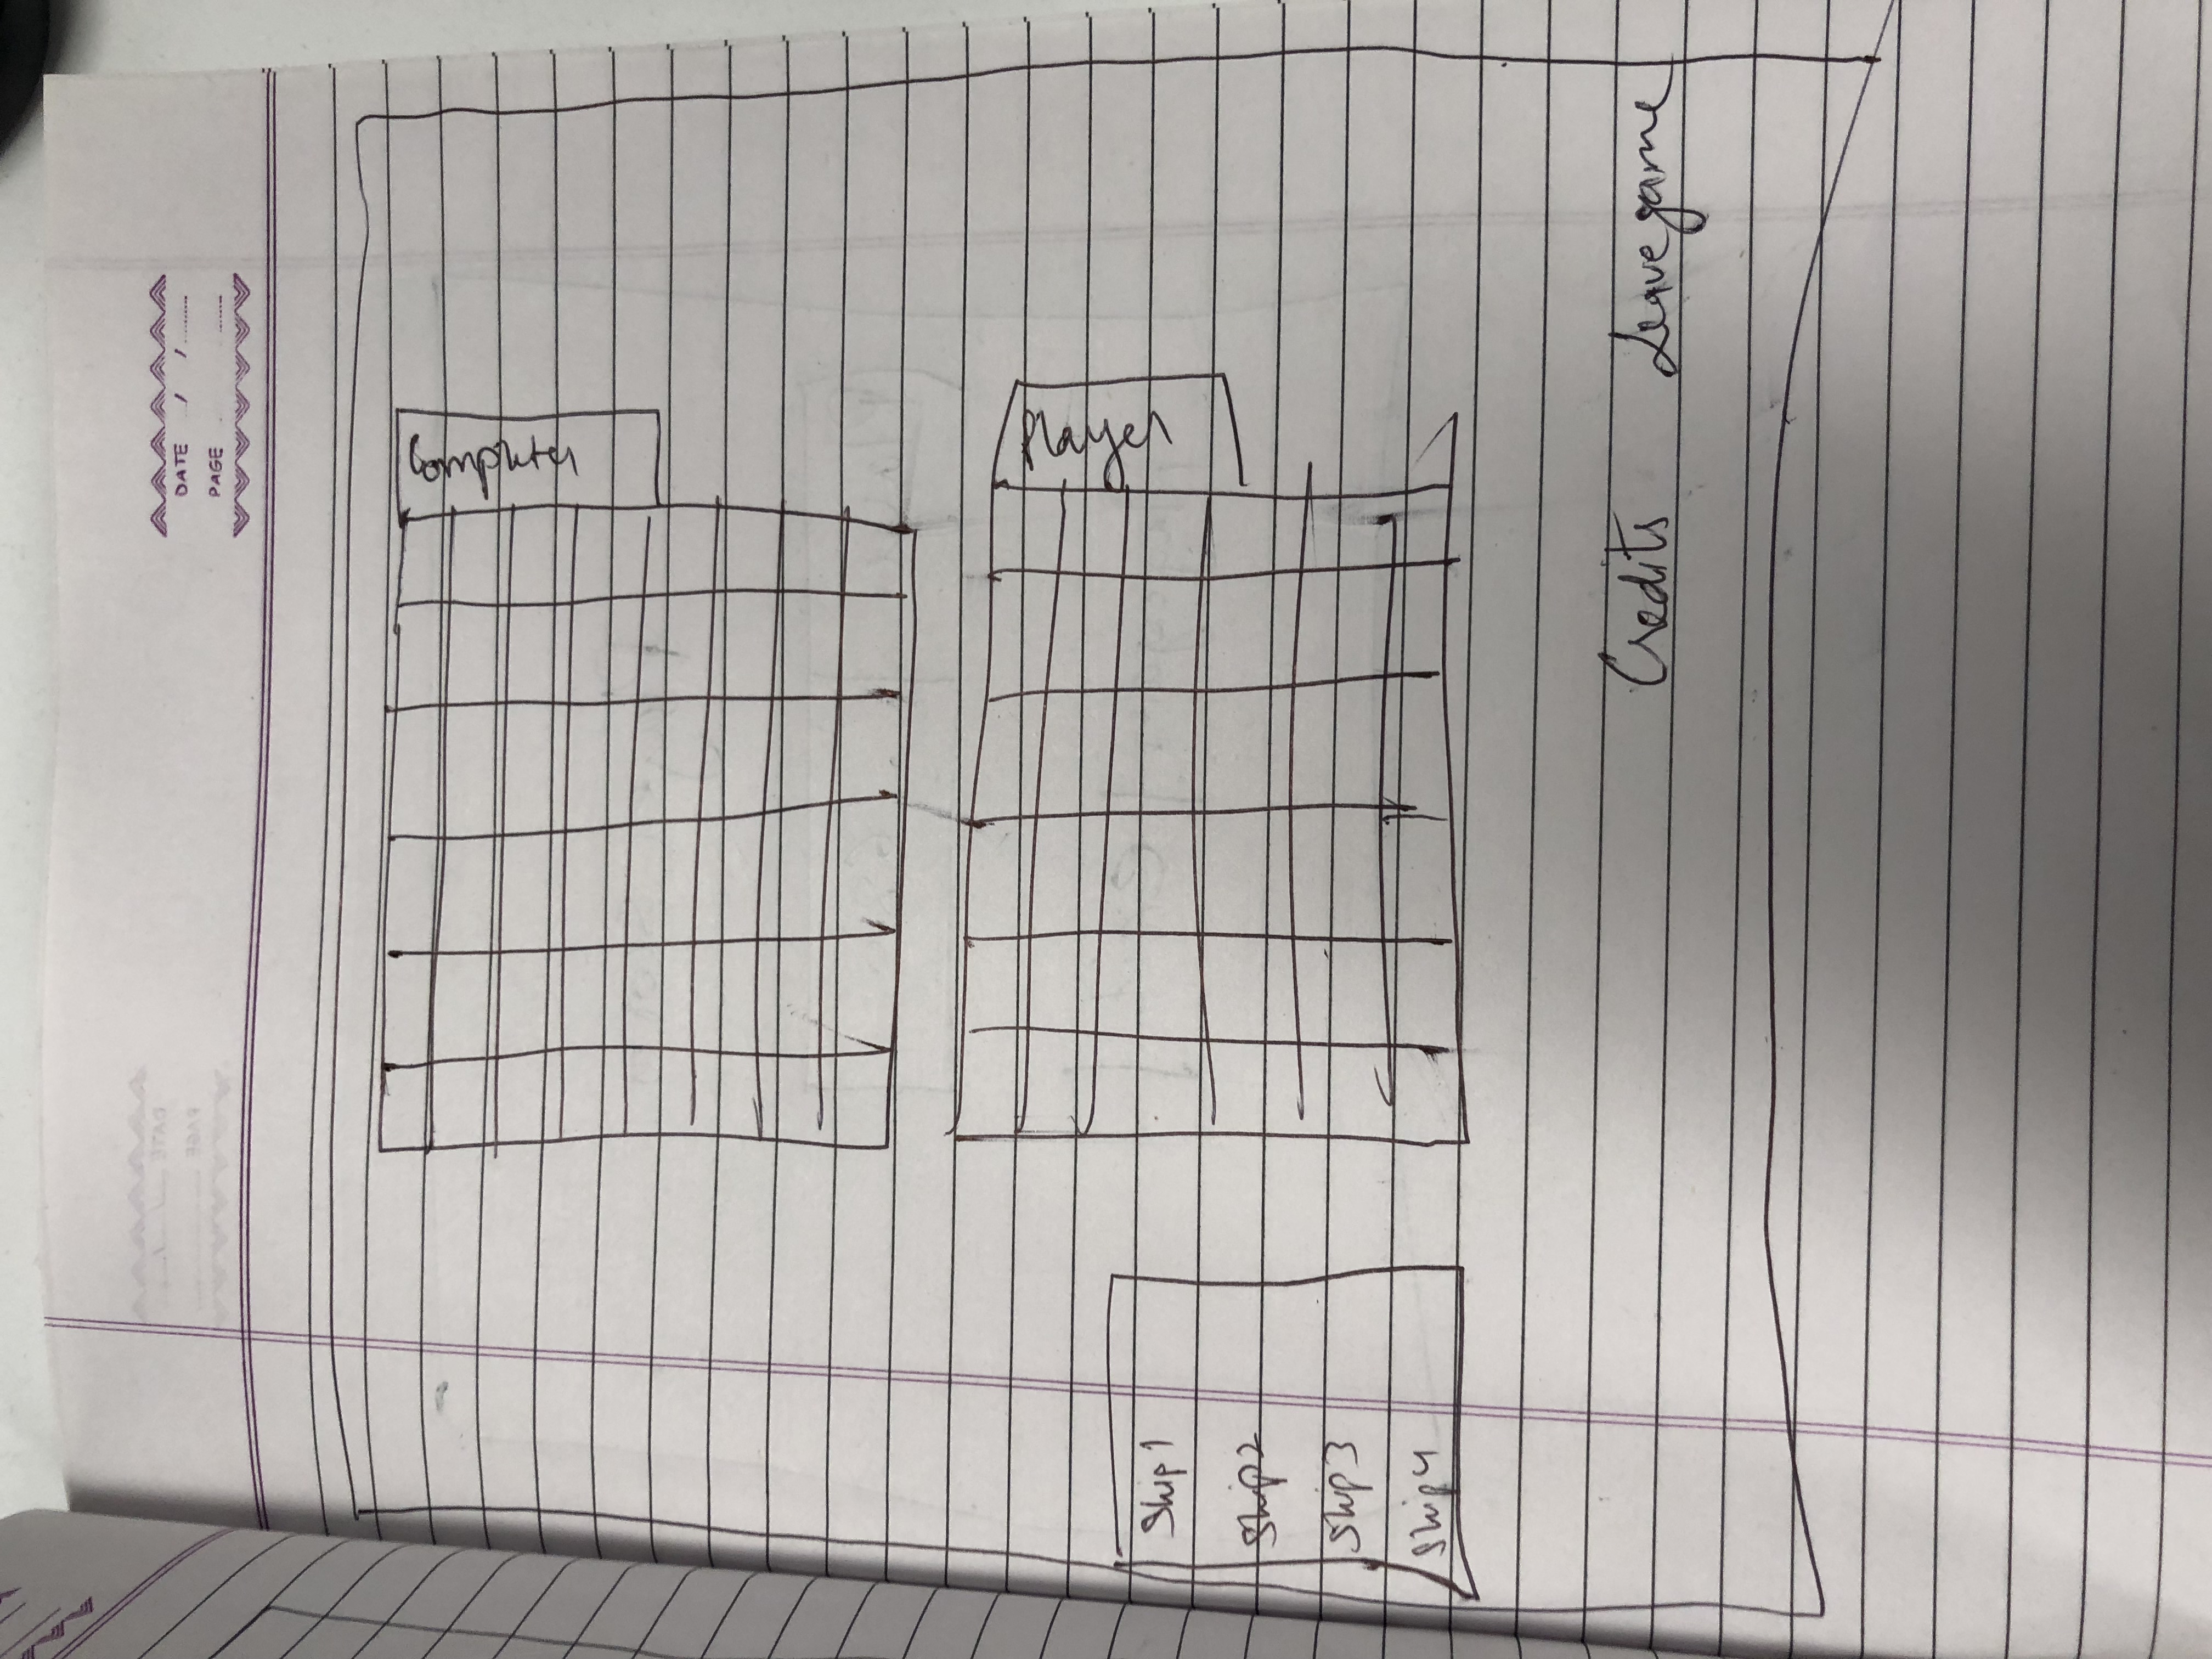 DATE / /
PAGE
Computer
Player
Ship 1
Ship 2
Ship 3
Ship 4
Credits Leave game